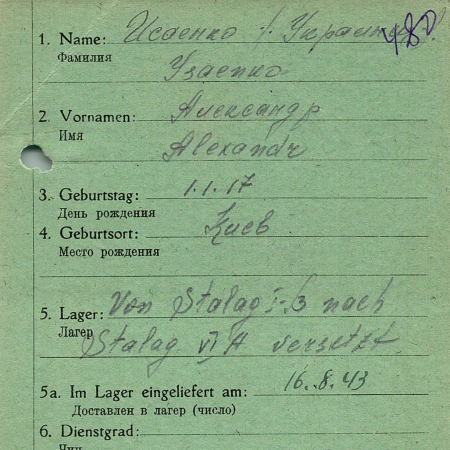 1. Name: Исаенко /. Украин 480.
Фамилия
Узаепко
2. Vornamen: Александр
Имя
Alexandr
3. Geburtstag: 1.1.17
День рождения
4. Geburtsort: Киев
Место рождения
5. Lager: Von Stalag I-B nach
Лагер Stalag VI A versetzt
5a. Im Lager eingeliefert am: 16.8.43
Доставлен в лагер (число)
6. Dienstgrad:
Чин